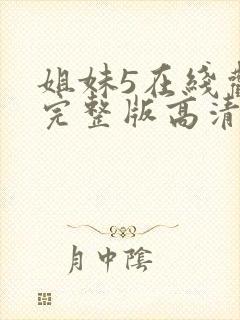 姐妹5在綫
完整版高清
月中陰